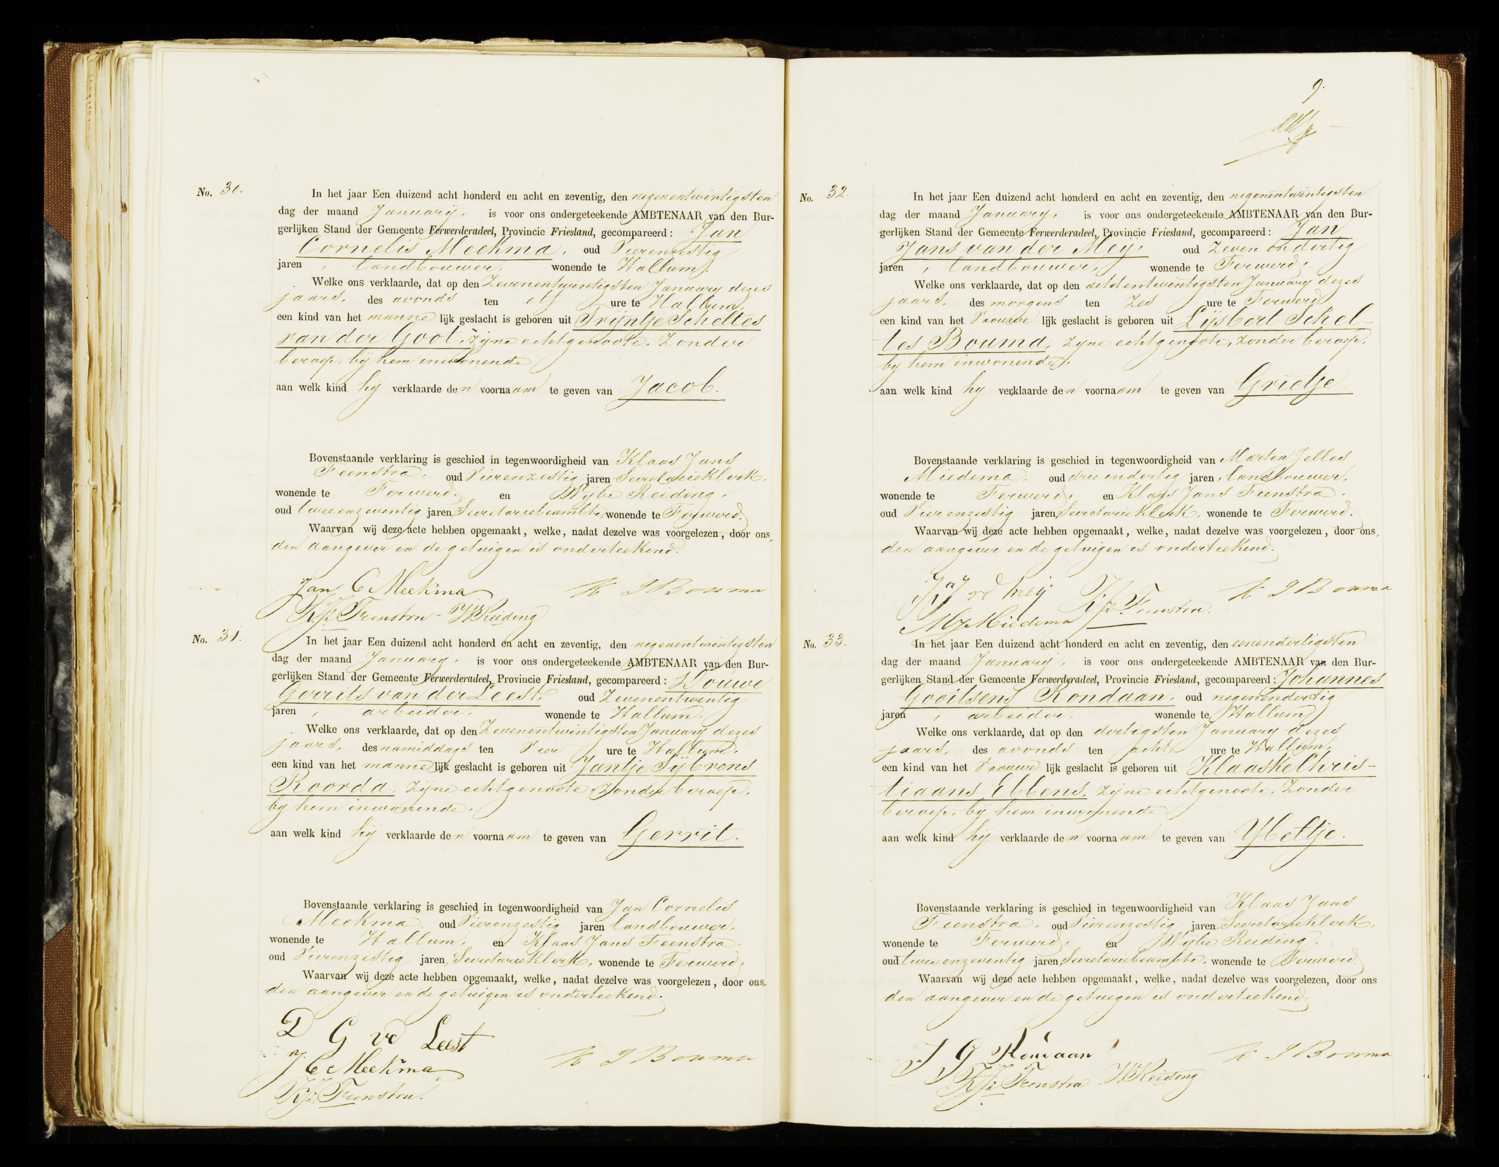 No. 30.
In het jaar Een duizend acht honderd en acht en zeventig, den negenentwintigsten
dag der maand January, is voor ons ondergeteekende AMBTENAAR van den Bur-
gerlijken Stand der Gemeente Ferwerderadeel, Provincie Friesland, gecompareerd: Jan
Cornelis Meekma, oud Vierenzestig
jaren, landbouwer, wonende te Hallum,
Welke ons verklaarde, dat op den Zevenentwintigsten January dezes
jaars, des avonds ten elf ure te Hallum,
een kind van het manne lijk geslacht is geboren uit Trijntje Scheltes
van der Goot, zijne echtgenoote, zonder
beroep, by hem inwonende
aan welk kind hy verklaarde den voornaam te geven van Jacob.
Bovenstaande verklaring is geschied in tegenwoordigheid van Klaas Jans
Feenstra, oud Vierenzestig jaren Secretarieklerk,
wonende te Ferwerd, en Wybe Reeding,
oud tweeenzeventig jaren Secretariebeambte, wonende te Ferwerd.
Waarvan wij deze acte hebben opgemaakt, welke, nadat dezelve was voorgelezen, door ons,
den aangever en de getuigen is onderteekend.
Jan C Meekma
K J Bouma
K. Js. Feenstra W Reeding
No. 31.
In het jaar Een duizend acht honderd en acht en zeventig, den negenentwintigsten
dag der maand January, is voor ons ondergeteekende AMBTENAAR van den Bur-
gerlijken Stand der Gemeente Ferwerderadeel, Provincie Friesland, gecompareerd: Douwe
Gerrits van der Leest, oud Zevenentwintig
jaren, arbeider, wonende te Hallum,
Welke ons verklaarde, dat op den Zevenentwintigsten January dezes
jaars, des namiddags ten Vier ure te Hallum,
een kind van het manne lijk geslacht is geboren uit Jantje Sijbrens
Roorda, zijne echtgenoote, zonder beroep,
by hem inwonende,
aan welk kind hy verklaarde den voornaam te geven van Gerrit.
Bovenstaande verklaring is geschied in tegenwoordigheid van Jan Cornelis
Meekma, oud Vierenzestig jaren landbouwer,
wonende te Hallum, en Klaas Jans Feenstra,
oud Vierenzestig jaren, Secretarieklerk, wonende te Ferwerd,
Waarvan wij deze acte hebben opgemaakt, welke, nadat dezelve was voorgelezen, door ons,
den aangever en de getuigen is onderteekend.
D G vd Leest
J C Meekma
K J Bouma
K. Js. Feenstra.
9.
No. 32
In het jaar Een duizend acht honderd en acht en zeventig, den negenentwintigsten
dag der maand January, is voor ons ondergeteekende AMBTENAAR van den Bur-
gerlijken Stand der Gemeente Ferwerderadeel, Provincie Friesland, gecompareerd: Jan
Jans van der Meij, oud Zeven en dertig
jaren, landbouwer, wonende te Ferwerd,
Welke ons verklaarde, dat op den achtentwintigsten January dezes
jaars, des morgens ten Zes ure te Ferwerd
een kind van het Vrouwe lijk geslacht is geboren uit Lijsbert Schel-
tes Bouma, zijne echtgenoote, zonder beroep,
by hem inwonende,
aan welk kind hy verklaarde den voornaam te geven van Grietje
Bovenstaande verklaring is geschied in tegenwoordigheid van Marten Jelles
Miedema, oud drieendertig jaren, landbouwer,
wonende te Ferwerd, en Klaas Jans Feenstra,
oud Vierenzestig jaren, Secretarieklerk, wonende te Ferwerd.
Waarvan wij deze acte hebben opgemaakt, welke, nadat dezelve was voorgelezen, door ons,
den aangever en de getuigen is onderteekend.
J J vd Meij K. Js. Feenstra. K J Bouma
M J Miedema
No. 33.
In het jaar Een duizend acht honderd en acht en zeventig, den eenendertigsten
dag der maand January, is voor ons ondergeteekende AMBTENAAR van den Bur-
gerlijken Stand der Gemeente Ferwerderadeel, Provincie Friesland, gecompareerd: Johannes
Gooitsens Rondaan, oud negenendertig
jaren, arbeider, wonende te Hallum
Welke ons verklaarde, dat op den dertigsten January dezes
jaars, des avonds ten acht ure te Hallum,
een kind van het Vrouwe lijk geslacht is geboren uit Klaaske Chris-
tiaans Ebbens, zijne echtgenoote, zonder
beroep, by hem inwonende
aan welk kind hy verklaarde den voornaam te geven van Ybeltje.
Bovenstaande verklaring is geschied in tegenwoordigheid van Klaas Jans
Feenstra, oud Vierenzestig jaren, Secretarieklerk,
wonende te Ferwerd, en Wybe Reeding,
oud tweeenzeventig jaren, Secretariebeambte, wonende te Ferwerd
Waarvan wij deze acte hebben opgemaakt, welke, nadat dezelve was voorgelezen, door ons
den aangever en de getuigen is onderteekend.
J G Rondaan
K J Bouma
K. Js. Feenstra W Reeding